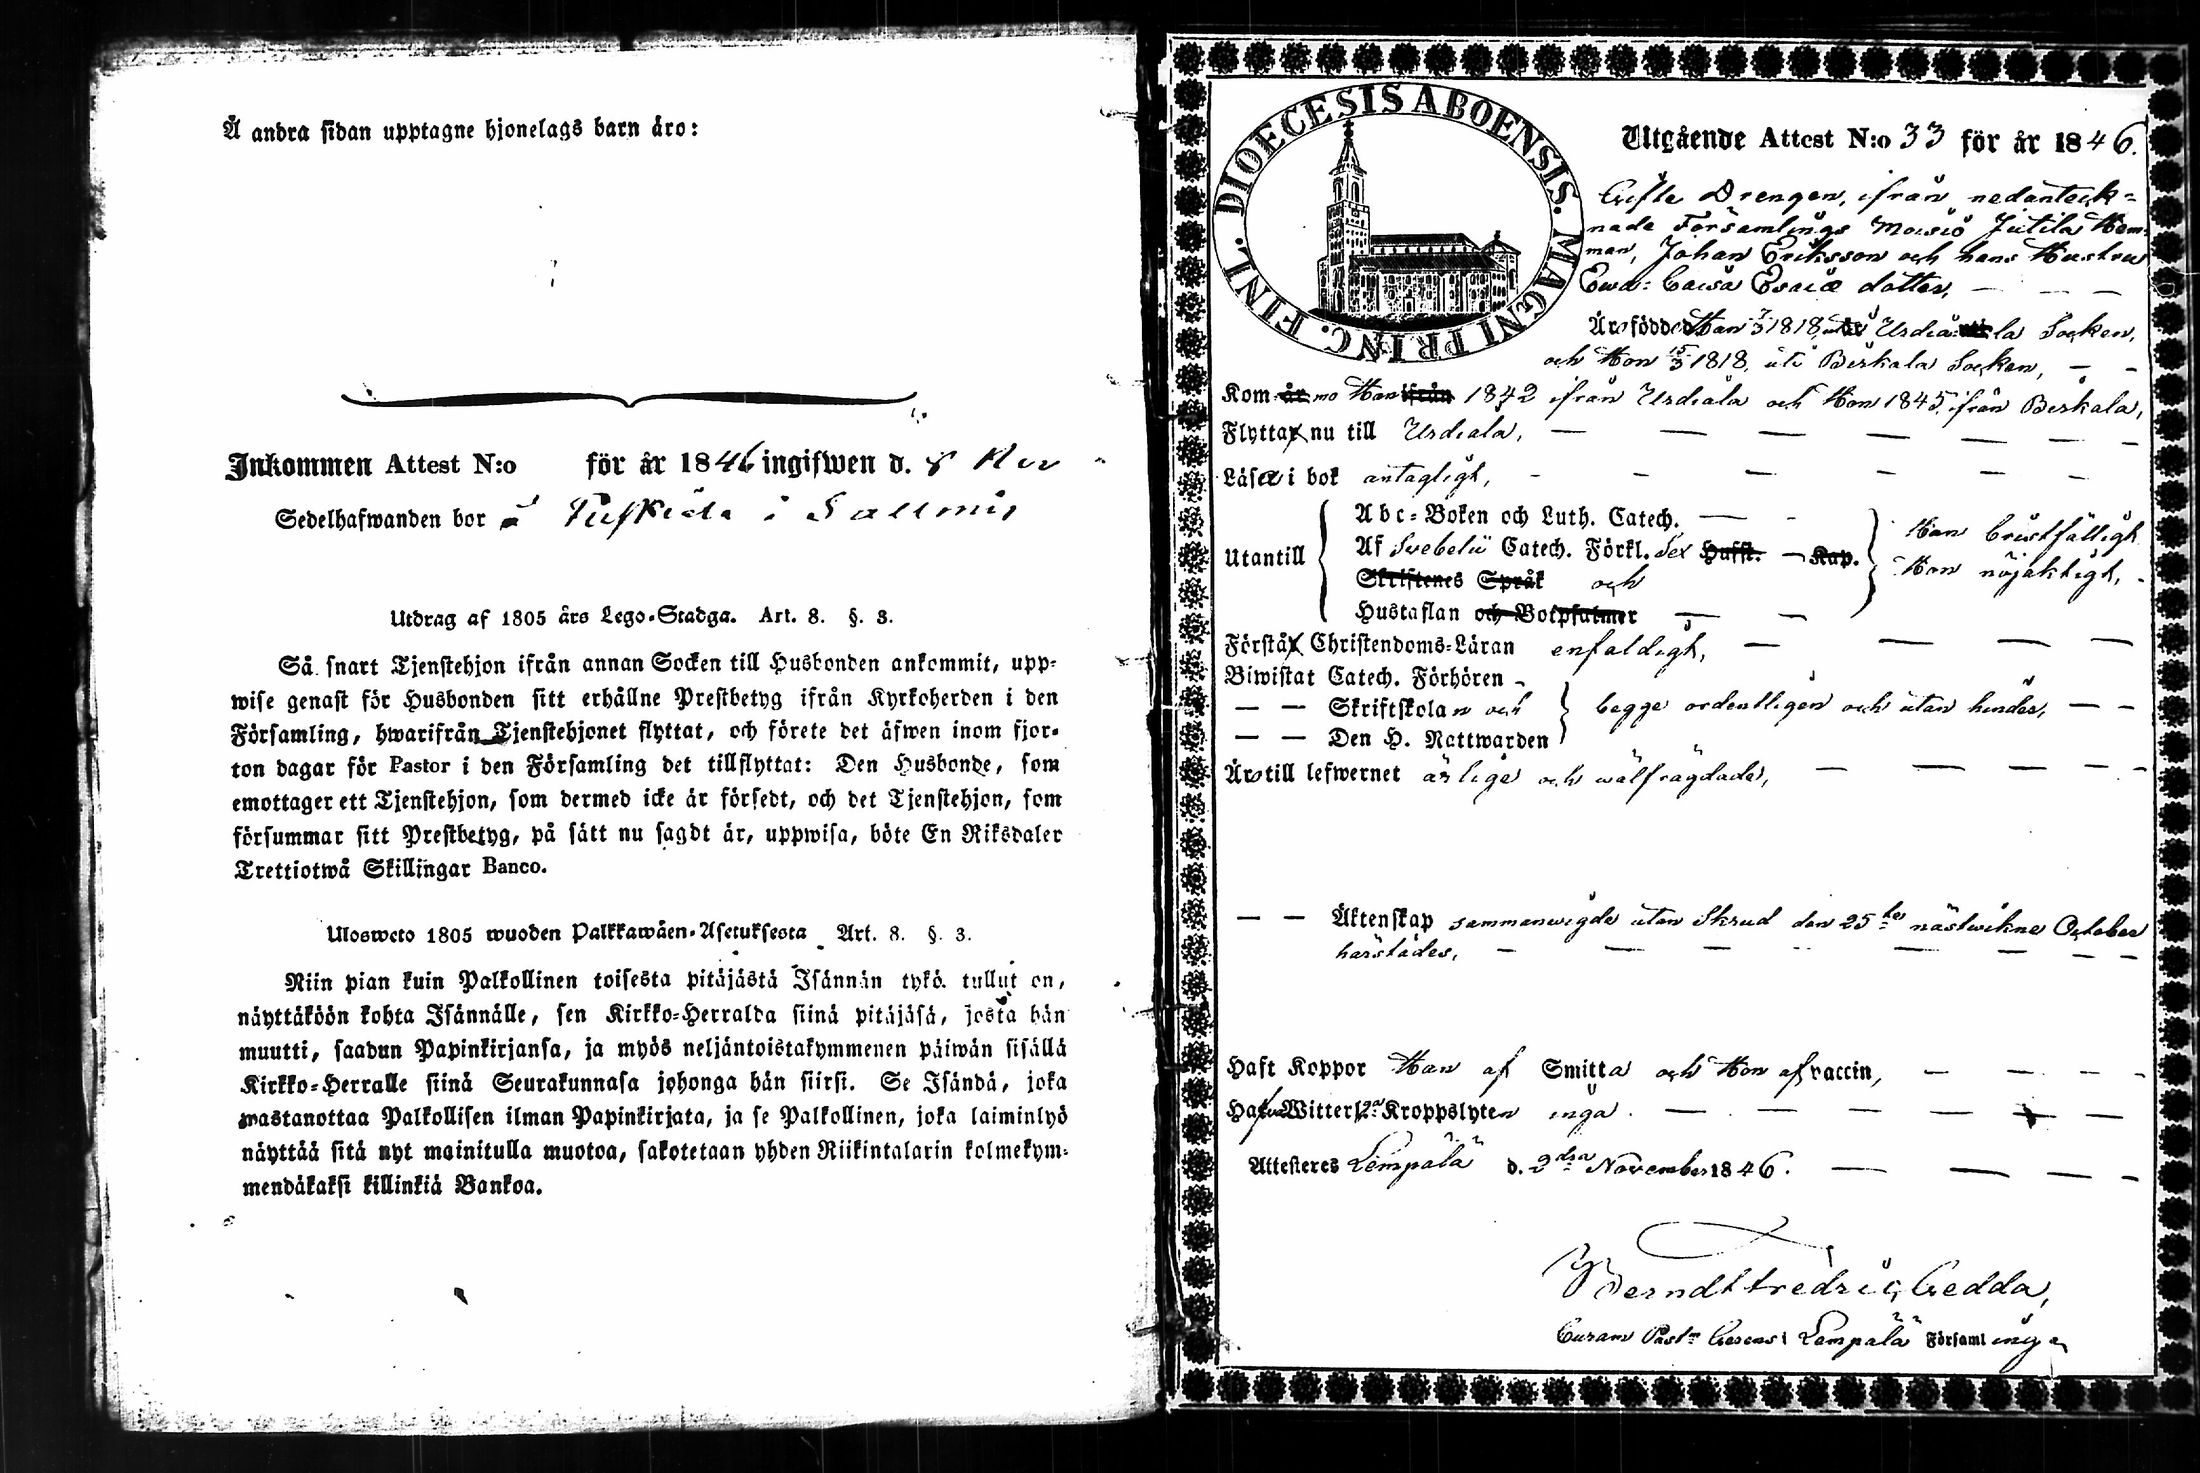 Å andra sidan upptagne hjonelags barn äro:
Inkommen Attest N:o för år 1846 ingifwen d. 8 Nov
Sedelhafwanden bor å i
Utdrag af 1805 års Lego-Stadga. Art. 8. §. 3.
Så snart Tjenstehjon ifrån annan Socken till Husbonden ankommit, upp-
wise genast för Husbonden sitt erhållne Prestbetyg ifrån Kyrkoherden i den
Församling, hwarifrån Tjenstehjonet flyttat, och förete det äfwen inom fjor-
ton dagar för Pastor i den Församling det tillflyttat: Den Husbonde, som
emottager ett Tjenstehjon, som dermed icke är försedt, och det Tjenstehjon, som
försummar sitt Prestbetyg, på sätt nu sagdt är, uppwisa, böte En Riksdaler
Trettiotwå Skillingar Banco.
Ulosweto 1805 wuoden Palkkawäen-Asetuksesta Art. 8. §. 3.
Niin pian kuin Palkollinen toisesta pitäjästä Isännän tykö tullut on,
näyttäköön kohta Isännälle, sen Kirkko-Herralda siinä pitäjäsä, josta hän
muutti, saadun Papinkirjansa, ja myös neljäntoistakymmenen päiwän sisällä
Kirkko-Herralle siinä Seurakunnasa johonga hän siirsi. Se Isändä, joka
wastanottaa Palkollisen ilman Papinkirjata, ja se Palkollinen, joka laiminlyö
näyttää sitä nyt mainitulla muotoa, sakotetaan yhden Riikintalarin kolmekym-
mendäkaksi killinkiä Bankoa.
DIOECESIS ABOENSIS. MAGNI PRINC. FINL.
Utgående Attest N:o 33 för år 1846.
Gifte Drengen, ifrån nedanteck-
nade Församlings Moisio Jutila Hem-
man, Johan Eriksson och hans Hustru
Ewa Caisa Esaiæ dotter, — — —
Äro födde Han 7/3 1818, uti Urdiala Socken,
och Hon 15/3 1818, uti Birkala Socken, — —
Kommo Han 1842 ifrån Urdiala och Hon 1845 ifrån Birkala,
Flytta nu till Urdiala, — — — — — — —
Läse i bok antagligt, — — — — — —
Utantill
Abc-Boken och Luth. Catech. — —
Af Svebelii Catech. Förkl. Sex Hufst. — Kap.
Skriftenes Språk och
Hustaflan och Botpsalmer — —
Han bristfälligt
Hon nöjaktigt, —
Förstå Christendoms-Läran enfaldigt, — — — —
Biwistat Catech. Förhören —
— — Skriftskolan och
— — Den H. Nattwarden
begge ordentligen och utan hinder, — —
Äro till lefwernet ärlige och wälfrägdade, — — — —
— — Äktenskap sammanwigde utan Skrud den 25te nästwikne October
härstädes, — — — — — — —
Haft Koppor Han af Smitta och Hon af vaccin, — — — —
Hafwa Witterl:a Kroppslyten inga. — — — — — —
Attesteres Lempälä d. 2dra November 1846. — — — —
Berndt Fredric Gedda,
Curam Past:m Gerens i Lempälä Församling